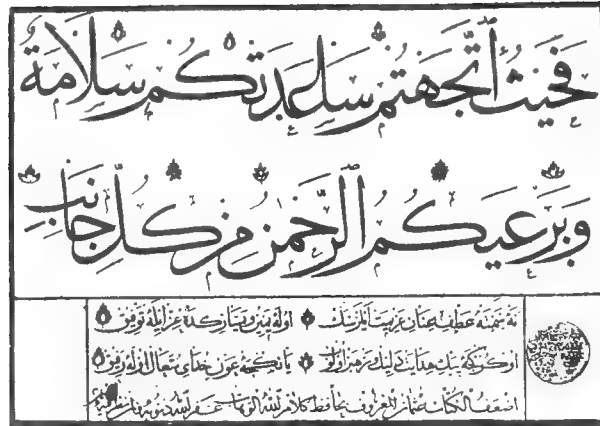 فَحَيْثُ ٱتَّجَهْتُمْ سَاعَدَتْكُمْ سَلَامَةٌ
وَيَرْعَيكُمُ الرَّحْمٰنُ مِنْ كُلِّ جَانِبِ
نه سمته عطف عنان عزيمت ايلرسك اوله يمين و يسارکده عز ايله توفيق
اوکنجه پيك هدايت دليلك رهبر يانکجه عون خداى تعالى اوله رفيق
اضعف الكتاب عثمان المعروف بحافظ كلام الله الوهاب غفر الله ذنوبه